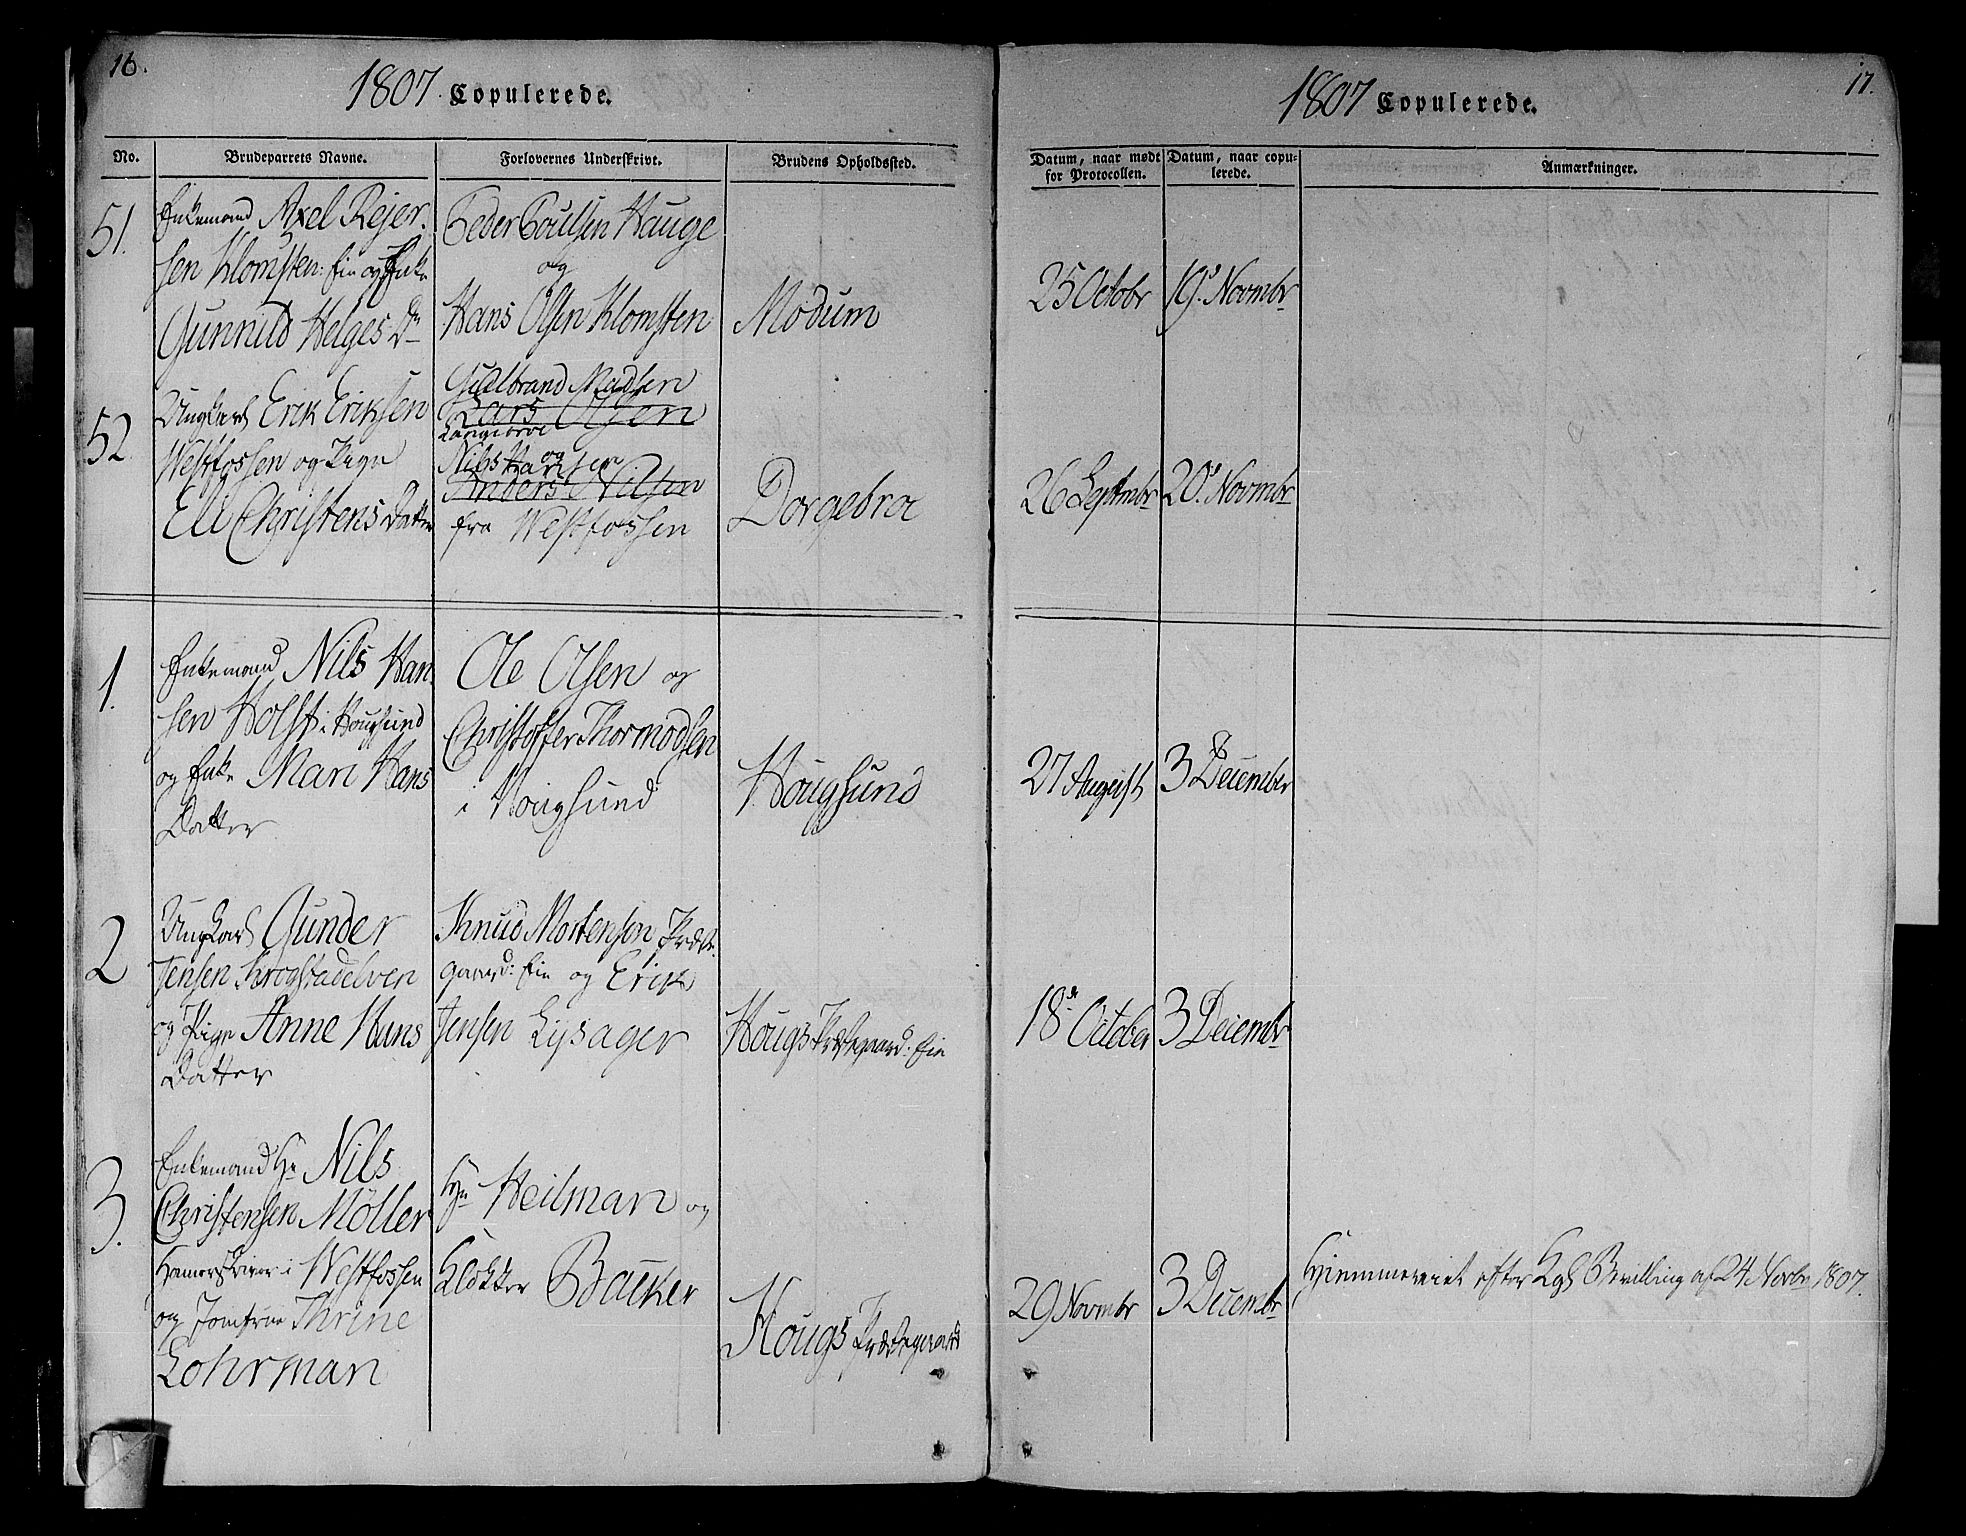 16.
1807. Copulerede.
No.
Brudeparrets Navne.
Forlovernes Underskrivt.
Brudens Opholdssted.
51.
Enkemand Axel Rejer-
sen Klomsten: Eie og Enke
Gunnild Helges Dr
Peder Poulsen Hauge
og
Hans Olsen Klomsten
Modum
52
Ungkarl Erik Eriksen
Westfossen og Pige
Eli Christens Datter
Guldbrand Madsen
Lars Olsen
Langebroe
og
Nils Hansen
Anders Nilsen
fra Westfossen
Dorgebroe
1.
Enkemand Nils Han
sen Holst i Hougsund
og Enke Mari Hans
Datter
Ole Olsen og
Christoffer Thormodsen
i Hougsund
Hougsund
2
Ungkarl Gunder
Jensen Krogstadelven
og Pige Anne Hans
Datter
Knud Mortenson Præste
gaard: Eie og Erik
Jensen Lysager
Hougs Præstegaard: Eie
3.
Enkemand Hr Nils
Christensen Möller
Hamerskriver i Westfossen
og Jomfrue Thrine
Lohrman
Hr Heilman og
Klokker Backer
Hougs Præstegaard
17.
1807 Copulerede.
Datum, naar mødt
for Protocollen.
Datum, naar copu-
lerede.
Anmærkninger.
25 Octobr 19 Novmbr
26 Septmbr 20 Novmbr
27 August 3 December
18de October 3 Decembr
29 Novmbr 3 Decembr
Hjemmeviet efter Kgl Bevilling af 24 Novbr 1807.